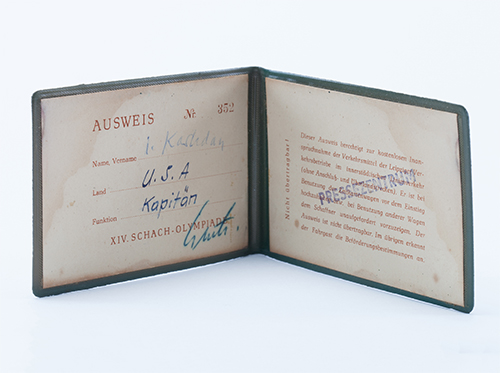 AUSWEIS
№ 352
Name, Vorname I. Kashdan
Land U.S.A
Funktion Kapitän
XIV. SCHACH-OLYMPIADE
Nicht übertragbar!
Dieser Ausweis berechtigt zur kostenlosen Inan-
spruchnahme der Verkehrsmittel der Leipziger Ver-
kehrsbetriebe im innerstädtischen
(ohne Anschluß- und
Benutzung der vor dem Einstieg
hochzuhalten, bei Benutzung anderer Wagen
dem Schaffner unaufgefordert vorzuzeigen. Der
Ausweis ist nicht übertragbar. Im übrigen erkennt
der Fahrgast die Beförderungsbestimmungen an.
PRESSEZENTRUM